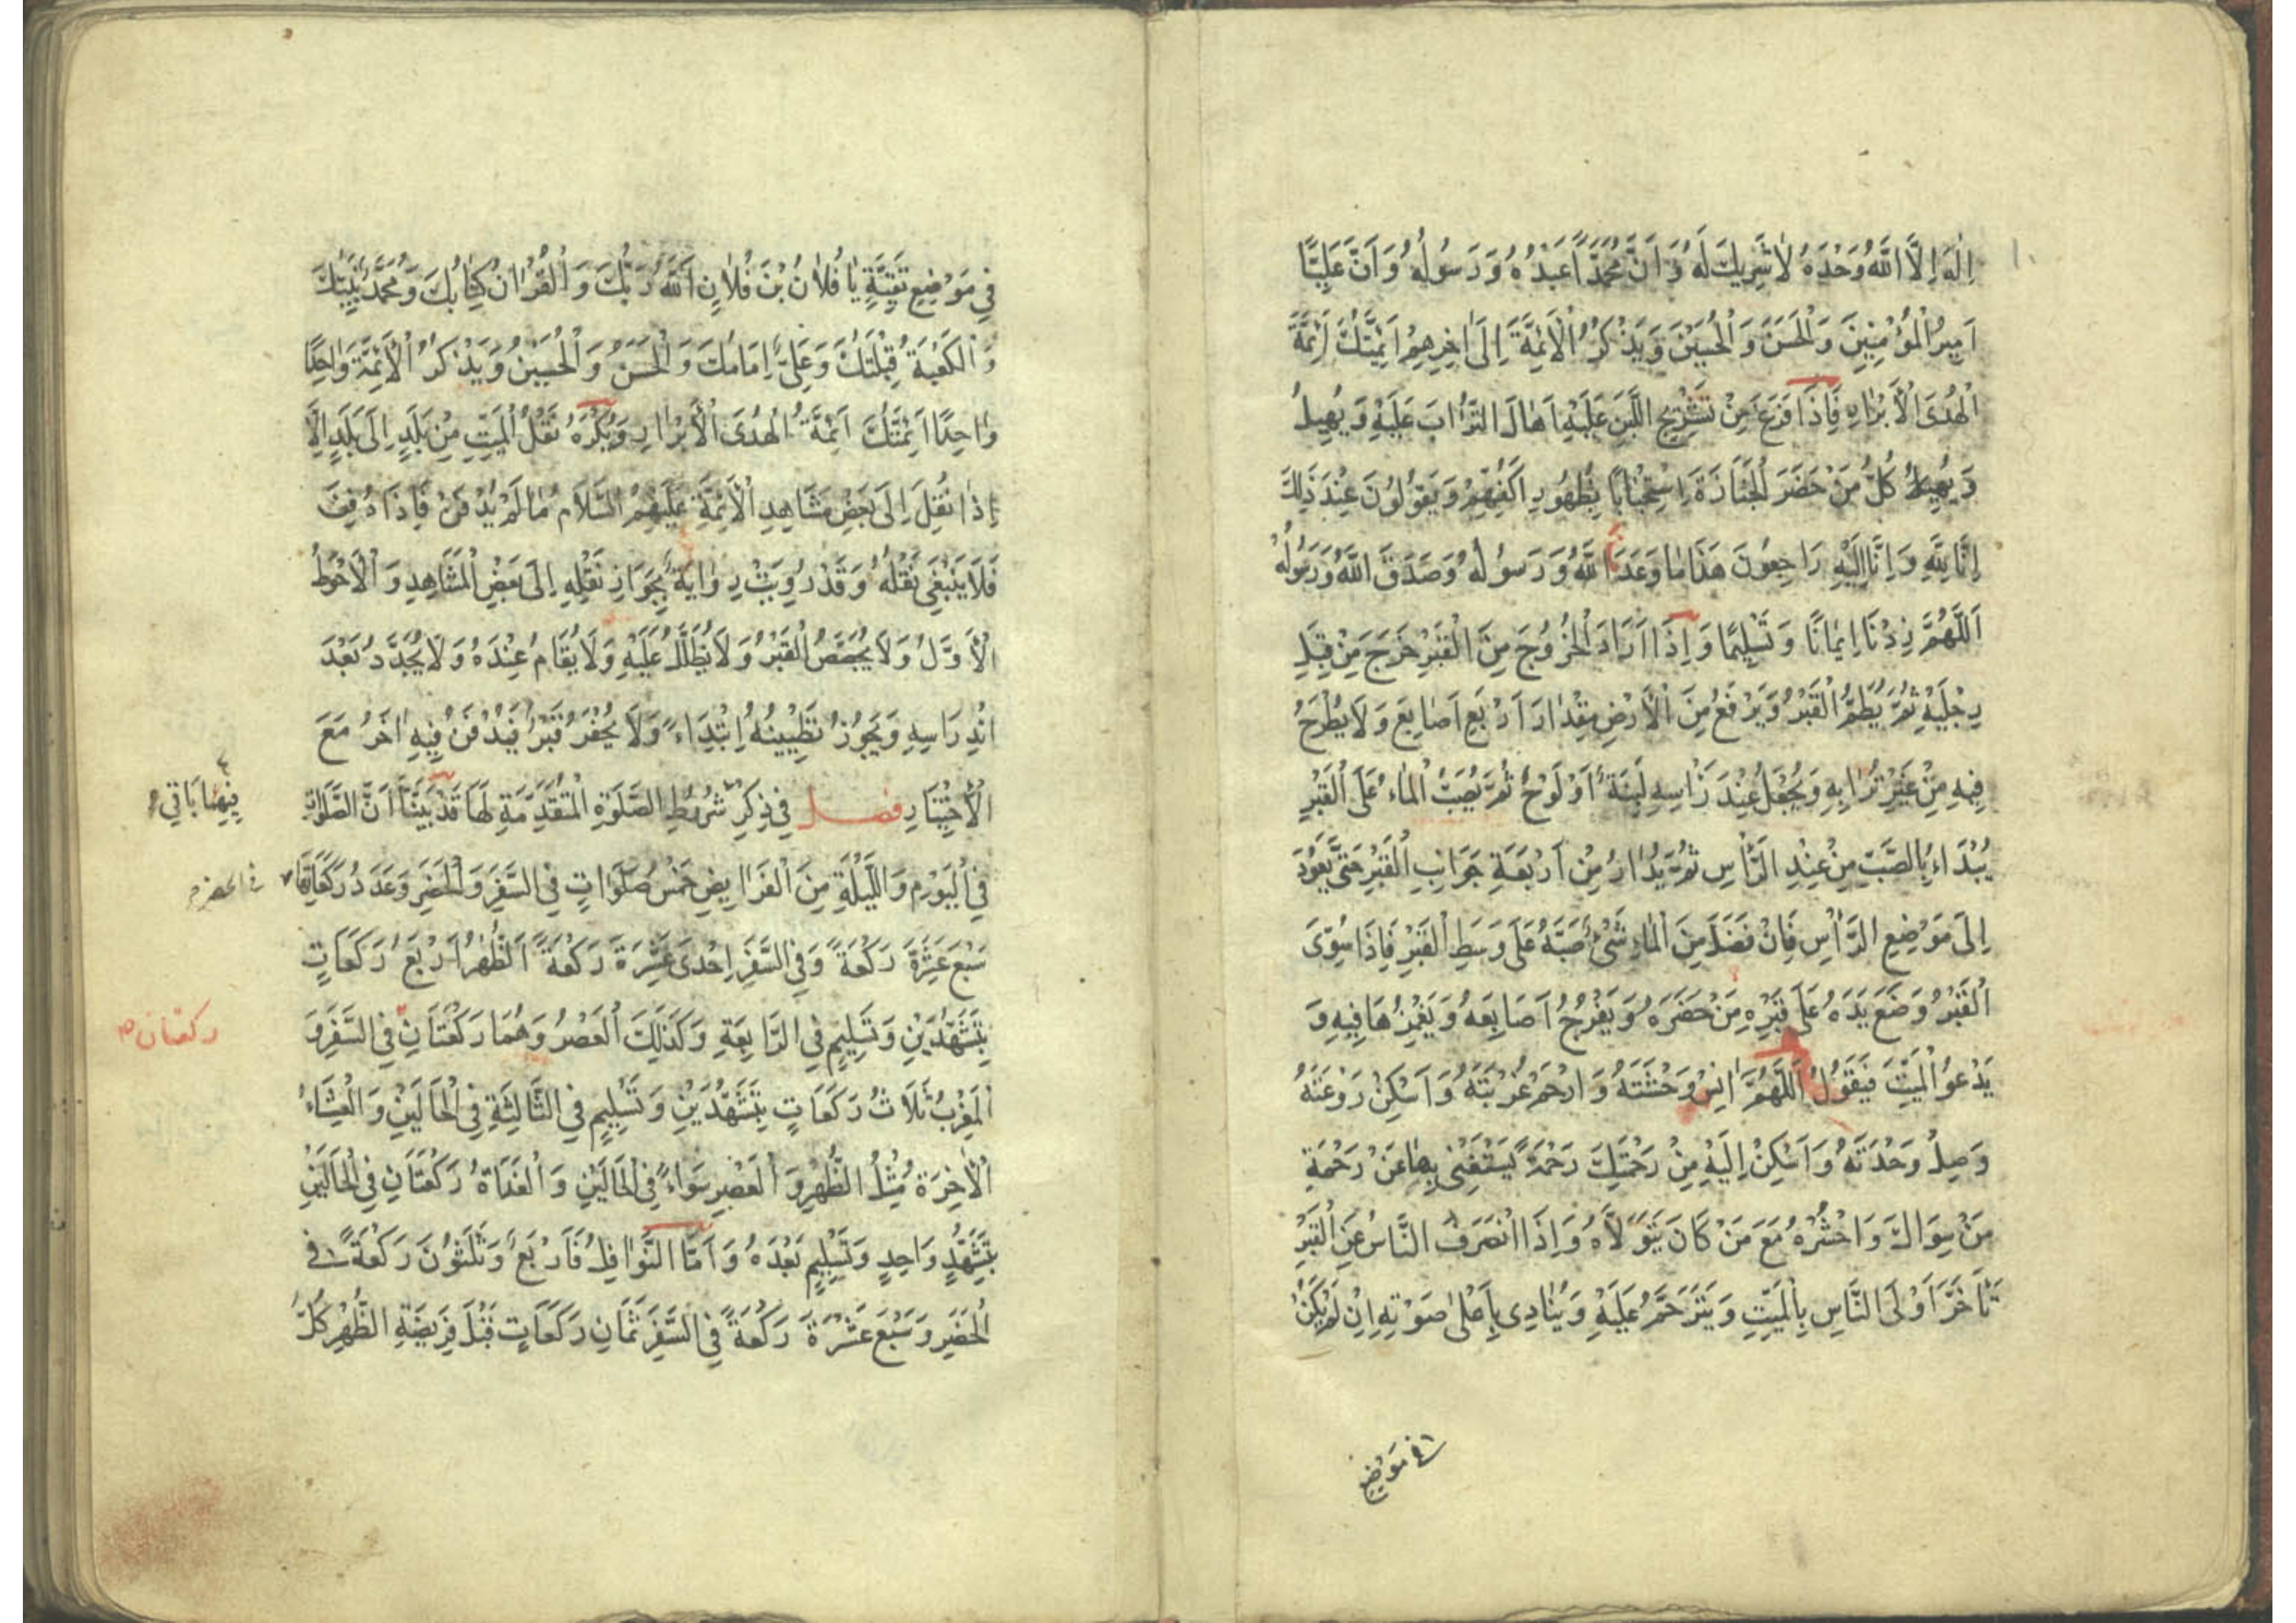 اِلٰهَ اِلَّا اللّٰهُ وَحْدَهُ لَا شَرِيكَ لَهُ وَ اَنَّ مُحَمَّدًا عَبْدُهُ وَ رَسُولُهُ وَ اَنَّ عَلِيًّا
اَمِيرُ الْمُؤْمِنِينَ وَ الْحَسَنَ وَ الْحُسَيْنَ وَ يَذْكُرُ الْاَئِمَّةَ اِلَى اٰخِرِهِمْ اَئِمَّتُكَ اَئِمَّةُ
الْهُدَى الْاَبْرَارِ فَاِذَا فَرَغَ مِنْ تَشْرِيجِ اللَّبِنِ عَلَيْهِ اَهَالَ التُّرَابَ عَلَيْهِ وَ يُهِيلُ
وَ يُهِيلُ كُلُّ مَنْ حَضَرَ الْجَنَازَةَ اِسْتِحْبَابًا بِظُهُورِ اَكُفِّهِمْ وَ يَقُولُونَ عِنْدَ ذٰلِكَ
اِنَّا لِلّٰهِ وَ اِنَّا اِلَيْهِ رَاجِعُونَ هَذَا مَا وَعَدَنَا اللّٰهُ وَ رَسُولُهُ وَ صَدَقَ اللّٰهُ وَ رَسُولُهُ
اَللّٰهُمَّ زِدْنَا اِيمَانًا وَ تَسْلِيمًا وَ اِذَا اَرَادَ الْخُرُوجَ مِنَ الْقَبْرِ خَرَجَ مِنْ قِبَلِ
رِجْلَيْهِ ثُمَّ يُطَمُّ الْقَبْرُ وَ يَرْفَعُ مِنَ الْاَرْضِ مِقْدَارَ اَرْبَعِ اَصَابِعَ وَ لَا يُطْرَحُ
فِيهِ مِنْ غَيْرِ تُرَابِهِ وَ يُجْعَلُ عِنْدَ رَأْسِهِ لَبِنَةٌ اَوْ لَوْحٌ ثُمَّ يُصَبُّ الْمَاءُ عَلَى الْقَبْرِ
يُبْدَاءُ بِالصَّبِّ مِنْ عِنْدِ الرَّأْسِ ثُمَّ يُدَارُ مِنْ اَرْبَعَةِ جَوَانِبِ الْقَبْرِ حَتَّى يَعُودَ
اِلَى مَوْضِعِ الرَّأْسِ فَاِنْ فَضَلَ مِنَ الْمَاءِ شَيْءٌ صَبَّهُ عَلَى وَسَطِ الْقَبْرِ فَاِذَا سُوِّيَ
الْقَبْرُ وَضَعَ يَدَهُ عَلَى قَبْرِهِ مَنْ حَضَرَهُ وَ يُفَرِّجُ اَصَابِعَهُ وَ يَغْمِزُهَا فِيهِ وَ
يَدْعُو الْمَيِّتِ فَيَقُولُ اَللّٰهُمَّ اٰنِسْ وَحْشَتَهُ وَ ارْحَمْ غُرْبَتَهُ وَ اَسْكِنْ رَوْعَتَهُ
وَ صِلْ وَحْدَتَهُ وَ اَسْكِنْ اِلَيْهِ مِنْ رَحْمَتِكَ رَحْمَةً يَسْتَغْنِى بِهَا عَنْ رَحْمَةِ
مَنْ سِوَاكَ وَ احْشُرْهُ مَعَ مَنْ كَانَ يَتَوَلَّاهُ وَ اِذَا انْصَرَفَ النَّاسُ عَنِ الْقَبْرِ
تَأَخَّرَ اَوْلَى النَّاسِ بِالْمَيِّتِ وَ يَتَرَحَّمُ عَلَيْهِ وَ يُنَادِى بِاَعْلَى صَوْتِهِ اِنْ لَمْ يَكُنْ
فى مَوْضِعِ
فِى مَوْضِعِ تَقِيَّةٍ يَا فُلَانُ بْنَ فُلَانٍ اَللّٰهُ رَبُّكَ وَ الْقُرْاٰنُ كِتَابُكَ وَ مُحَمَّدٌ نَبِيُّكَ
وَ الْكَعْبَةُ قِبْلَتُكَ وَ عَلِىٌّ اِمَامُكَ وَ الْحَسَنُ وَ الْحُسَيْنُ وَ يَذْكُرُ الْاَئِمَّةَ وَاحِدًا
وَاحِدًا اَئِمَّتُكَ اَئِمَّةُ الْهُدَى الْاَبْرَارِ وَ يُكْرَهُ نَقْلُ الْمَيِّتِ مِنْ بَلَدٍ اِلَى بَلَدٍ اِلَّا
اِذَا نُقِلَ اِلَى بَعْضِ مَشَاهِدِ الْاَئِمَّةِ عَلَيْهِمُ السَّلَامُ مَا لَمْ يُدْفَنْ فَاِذَا دُفِنَ
فَلَا يَنْبَغِى نَقْلُهُ وَ قَدْ رُوِيَتْ رِوَايَةٌ بِجَوَازِ نَقْلِهِ اِلَى بَعْضِ الْمَشَاهِدِ وَ الْاَحْوَطُ
الْاَوَّلُ وَ لَا يُجَصَّصُ الْقَبْرُ وَ لَا يُظَلَّلُ عَلَيْهِ وَ لَا يُقَامُ عِنْدَهُ وَ لَا يُجَدَّدُ بَعْدَ
انْدِرَاسِهِ وَ يَجُوزُ تَطْيِينُهُ اِبْتِدَاءً وَ لَا يُحْفَرُ قَبْرٌ فَيُدْفَنُ فِيهِ اٰخَرُ مَعَ
الْاِخْتِيَارِ فصل فِى ذِكْرِ شُرُوطِ الصَّلٰوةِ الْمُتَقَدِّمَةِ لَهَا قَدْ بَيَّنَّا اَنَّ الصَّلَوَاتِ
فِى الْيَوْمِ وَ اللَّيْلَةِ مِنَ الْفَرَايِضِ خَمْسُ صَلَوَاتٍ فِى السَّفَرِ وَ الْحَضَرِ وَ عَدَدُ رَكَعَاتِهَا
فى الحضر
سَبْعَ عَشَرَةَ رَكْعَةً وَ فِى السَّفَرِ اِحْدَى عَشْرَةَ رَكْعَةً اَلظُّهْرُ اَرْبَعُ رَكَعَاتٍ
بِتَشَهُّدَيْنِ وَ تَسْلِيمٍ فِى الرَّابِعَةِ وَ كَذَلِكَ الْعَصْرُ وَ هُمَا رَكْعَتَانِ فِى السَّفَرِ وَ
ركعتان
الْمَغْرِبُ ثَلَاثُ رَكَعَاتٍ بِتَشَهُّدَيْنِ وَ تَسْلِيمٍ فِى الثَّالِثَةِ فِى الْحَالَيْنِ وَ الْعِشَاءُ
الْاٰخِرَةُ مِثْلُ الظُّهْرِ وَ الْعَصْرِ سَوَاءً فِى الْحَالَيْنِ وَ الْغَدَاةُ رَكْعَتَانِ فِى الْحَالَيْنِ
بِتَشَهُّدٍ وَاحِدٍ وَ تَسْلِيمٍ بَعْدَهُ وَ اَمَّا النَّوَافِلُ فَاَرْبَعٌ وَ ثَلٰثُونَ رَكْعَةً فى
الْحَضَرِ وَ سَبْعَ عَشْرَةَ رَكْعَةً فِى السَّفَرِ ثَمَانِ رَكَعَاتٍ قَبْلَ فَرِيضَةِ الظُّهْرِ كُلُّ